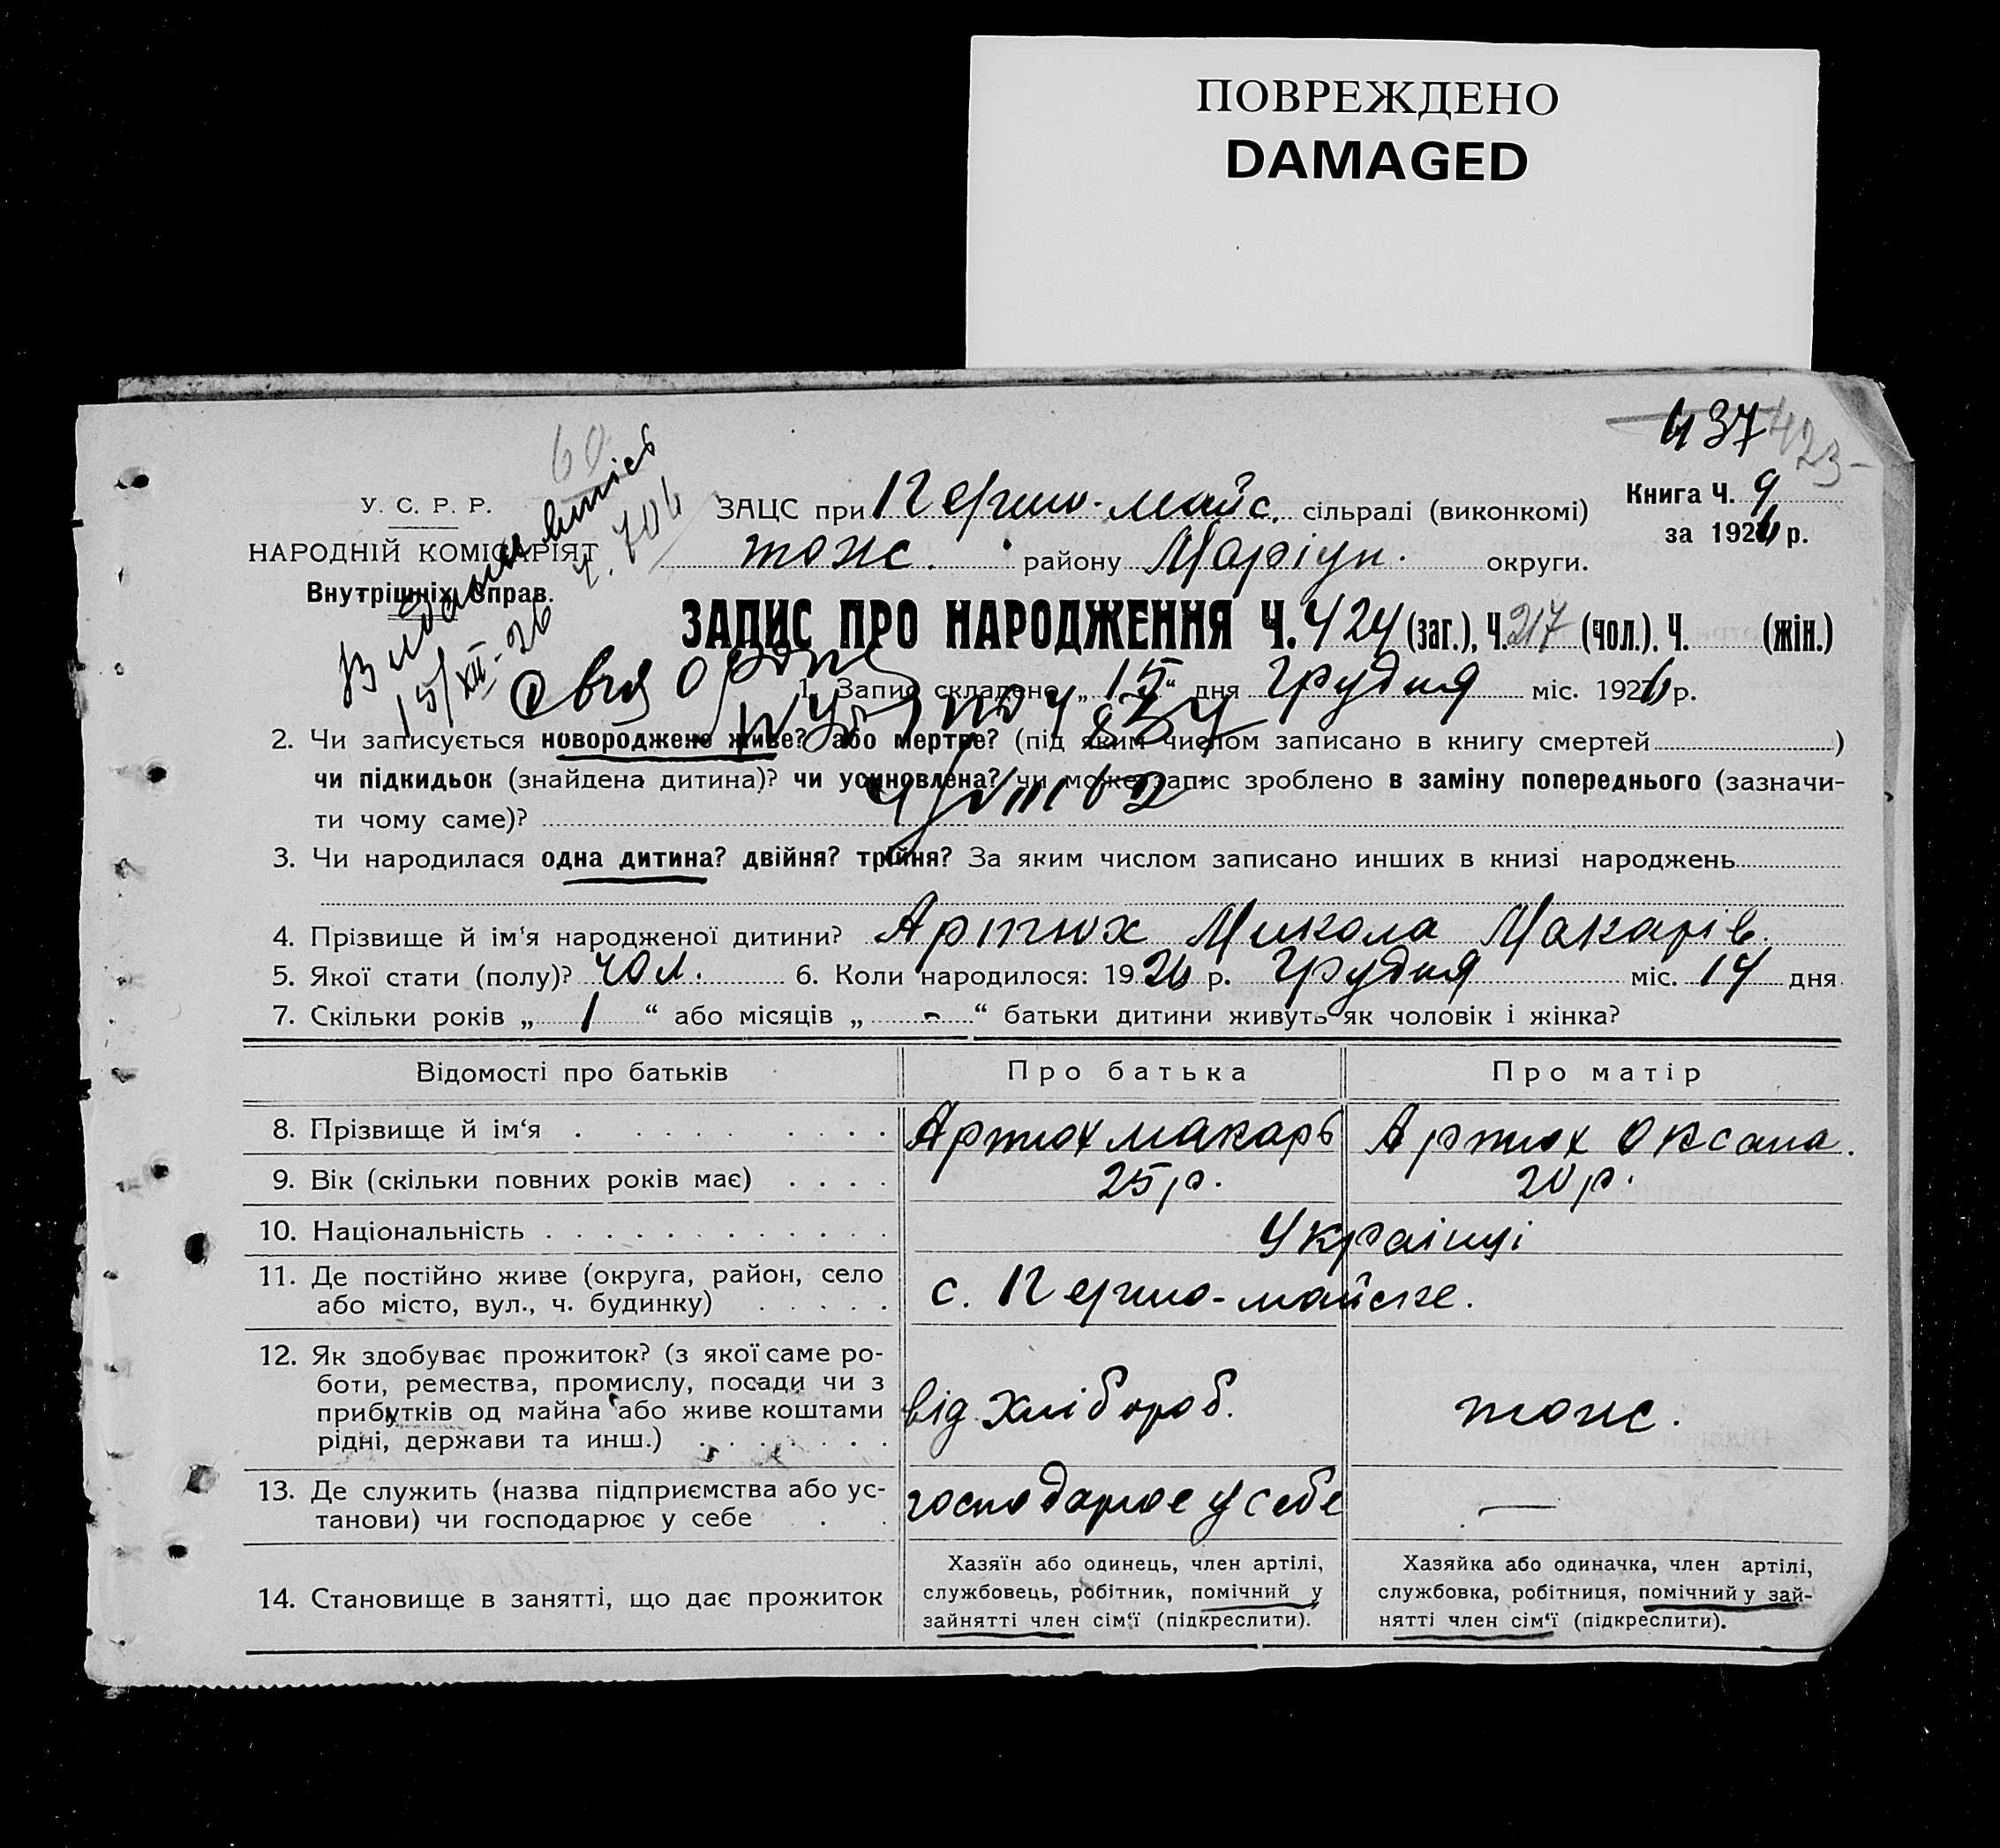 ПОВРЕЖДЕНО
DAMAGED
437 423
60
Видано витяг
ч. 704
15/XII-26
У. С. Р. Р.
НАРОДНІЙ КОМІСАРІЯТ
Внутрішніх Справ.
ЗАЦС при Першо-майс. сільраді (виконкомі)
Книга Ч. 9
за 1926 р.
тонс. району Маріуп. округи.
ЗАПИС ПРО НАРОДЖЕННЯ Ч. 424 (заг.), Ч. 217 (чол.). Ч. (жін.)
1. Запис складено „ 15 “ дня Грудня міс. 1926 р.
2. Чи записується новороджене живе? або мертве? (під яким числом записано в книгу смертей )
чи підкидьок (знайдена дитина)? чи усиновлена? чи може запис зроблено в заміну попереднього (зазначи-
ти чому саме)?
3. Чи народилася одна дитина? двійня? трійня? За яким числом записано инших в книзі народжень
4. Прізвище й ім'я народженої дитини? Артюх Микола Макарів
5. Якої стати (полу)? чол. 6. Коли народилося: 1926 р. Грудня міс. 14 дня
7. Скільки років „ 1 “ або місяців „ - “ батьки дитини живуть як чоловік і жінка?
Відомості про батьків Про батька Про матір
8. Прізвище й ім'я Артюх Макарь Артюх Оксана.
9. Вік (скільки повних років має) 25 р. 20 р.
10. Національність Українці
11. Де постійно живе (округа, район, село
або місто, вул., ч. будинку) с. Першо-майське.
12. Як здобуває прожиток? (з якої саме ро-
боти, ремества, промислу, посади чи з
прибутків од майна або живе коштами
рідні, держави та инш.) від хлібороб. тонс.
13. Де служить (назва підприємства або ус-
танови) чи господарює у себе господарює у себе —
14. Становище в занятті, що дає прожиток
Хазяїн або одинець, член артілі,
службовець, робітник, помічний у
зайнятті член сім'ї (підкреслити).
Хазяйка або одиначка, член артілі,
службовка, робітниця, помічний у зай-
нятті член сім'ї (підкреслити).